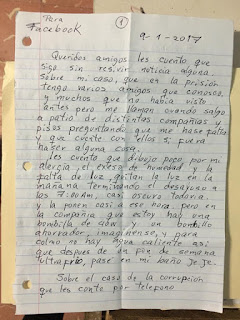 Para
Facebook
1
9-1-2017
Queridos amigos les cuento que
sigo sin resivir noticia alguna
sobre mi caso, que en la prisión
tengo varios amigos que conosco,
y muchos que no había visto
antes pero me llaman cuando salgo
a patio de distintas compañias y
pisos preguntando que me hace falta
y que cuente con ellos si fuera
haser alguna cosa.
Les cuento que dibujo poco por mi
alergia el exeso de humedad y la
falta de luz, quitan la luz en la
mañana terminando el desayuno a
las 7:00 AM, casi oscuro todavia,
y la ponen casi a esa hora pero en
la compañia que estoy hay una
bombilla de 40w y un bombillo
ahorrador, imaginense, y para
colmo no hay agua caliente asi
que despues de un fin de semana
ultrafrio, pase en mi baño Je Je.
Sobre el caso de la corrupción
que les conte por telefono